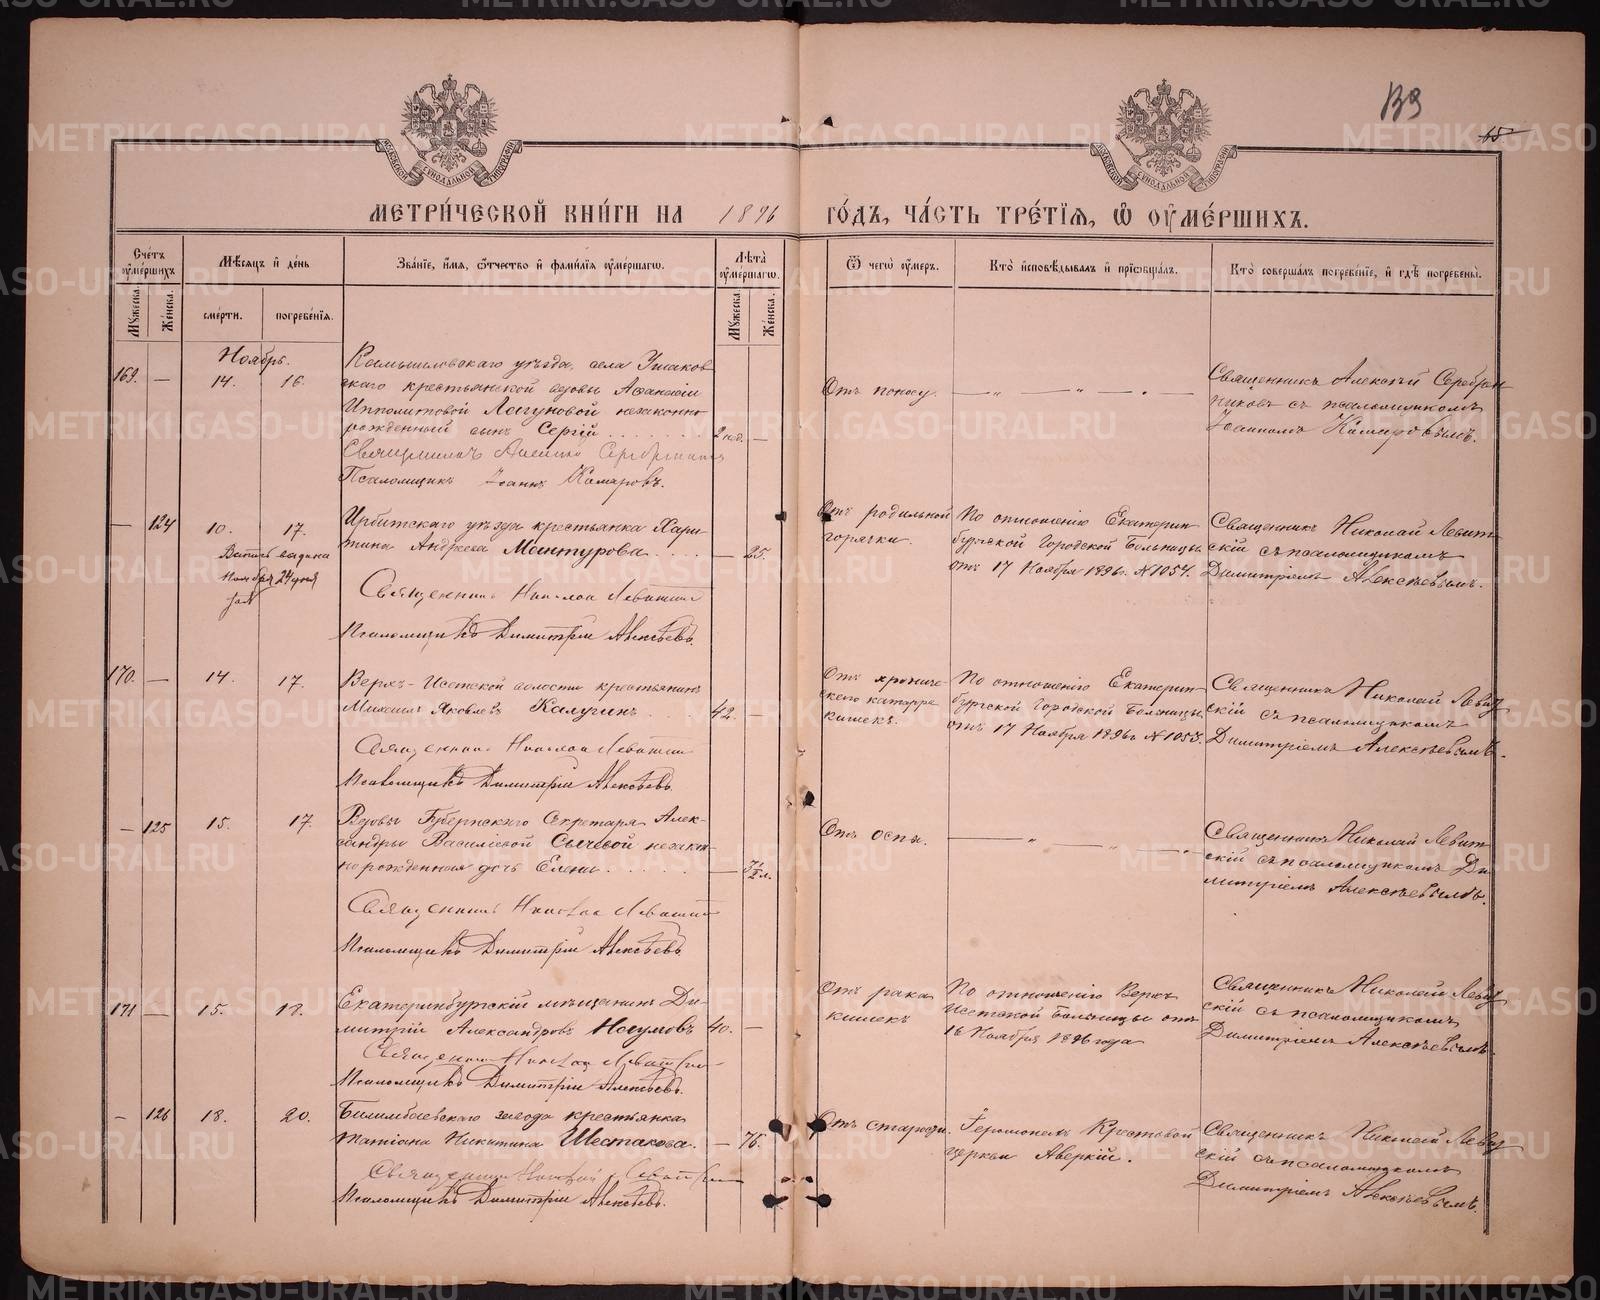 139
65
МЕТРИ́ЧЕСКОЙ КНИ́ГИ НА 1896 ГО́ДЪ, ЧА́СТЬ ТРЕ́ТІЯ, Ѿ ОУМЕ́РШИХЪ.
Сче́тъ оуме́ршихъ
Мѣ́сяцъ и́ де́нь
Зва́ніе, и́мя, ѻ́тчество и́ фами́лія оуме́ршагѡ.
Лѣ́та оуме́ршагѡ.
Ѿ чегѡ̀ оу́меръ.
Кто̀ и́сповѣ́дывалъ и́ пріѡбща́лъ.
Кто̀ соверша́лъ погребе́ніе, и́ гдѣ̀ погребены̀.
Му́жеска.
Же́нска.
сме́рти.
погребе́нія.
Му́жеска.
Же́нска.
Ноябрь.
169. — 14. 16.
Камышловскаго уѣзда, села Ушаков
скаго крестьянской вдовы Афанасіи
Ипполитовой Лагуновой незаконно
рожденный сынъ Сергій . . . . . 2 нед. —
Священникъ Алексій Серебренниковъ
Псаломщикъ Іоаннъ Комаровъ.
Отъ поносу.
Священникъ Алексѣй Серебрен
никовъ съ псаломщикомъ
Іоанномъ Комаровымъ.
— 124 10. 17.
Ноября 24 дня
Ирбитскаго уѣзда крестьянка Хари
тина Андреева Мантурова . . . . — 25.
Священникъ Николай Левитскій
Псаломщикъ Димитрій Алексѣевъ.
Отъ родильной
горячки.
По отношенію Екатерин
бургской Городской Больницы
отъ 17 Ноября 1896 г. №1054.
Священникъ Николай Левит
скій съ псаломщикомъ
Димитріемъ Алексѣевымъ.
170. — 14. 17.
Верхъ-Исетской волости крестьянинъ
Михаилъ Яковлевъ Калугинъ . . . 42. —
Священникъ Николай Левитскій
Псаломщикъ Димитрій Алексѣевъ.
Отъ хрониче-
скаго катарра
кишекъ.
По отношенію Екатерин
бургской Городской Больницы
отъ 17 Ноября 1896 г. №1053.
Священникъ Николай Левит
скій съ псаломщикомъ
Димитріемъ Алексѣевымъ.
— 125 15. 17.
Вдовы Губернскаго Секретаря Алек-
сандры Василіевой Сычевой незакон
норожденная дочь Елена . . . . . —
Священникъ Николай Левитскій
Псаломщикъ Димитрій Алексѣевъ.
Отъ оспы.
Священникъ Николай Левит
скій съ псаломщикомъ Ди
митріемъ Алексѣевымъ.
171 — 15. 17.
Екатеринбургскій мѣщанинъ Ди-
митрій Александровъ Наумовъ 40. —
Священникъ Николай Левитскій
Псаломщикъ Димитрій Алексѣевъ.
Отъ рака
кишекъ
По отношенію Верхъ
Исетской Больницы отъ
16 Ноября 1896 года
Священникъ Николай Левит
скій съ псаломщикомъ
Димитріемъ Алексѣевымъ.
— 126 18. 20.
Билимбаевскаго завода крестьянка
Татіана Никитина Шестакова. — 76.
Священникъ Николай Левитскій
Псаломщикъ Димитрій Алексѣевъ.
Отъ старости.
Іеромонахъ Крестовой
церкви Аверкій.
Священникъ Николай Левит
скій съ псаломщикомъ
Димитріемъ Алексѣевымъ.
METRIKI.GASO-URAL.RU